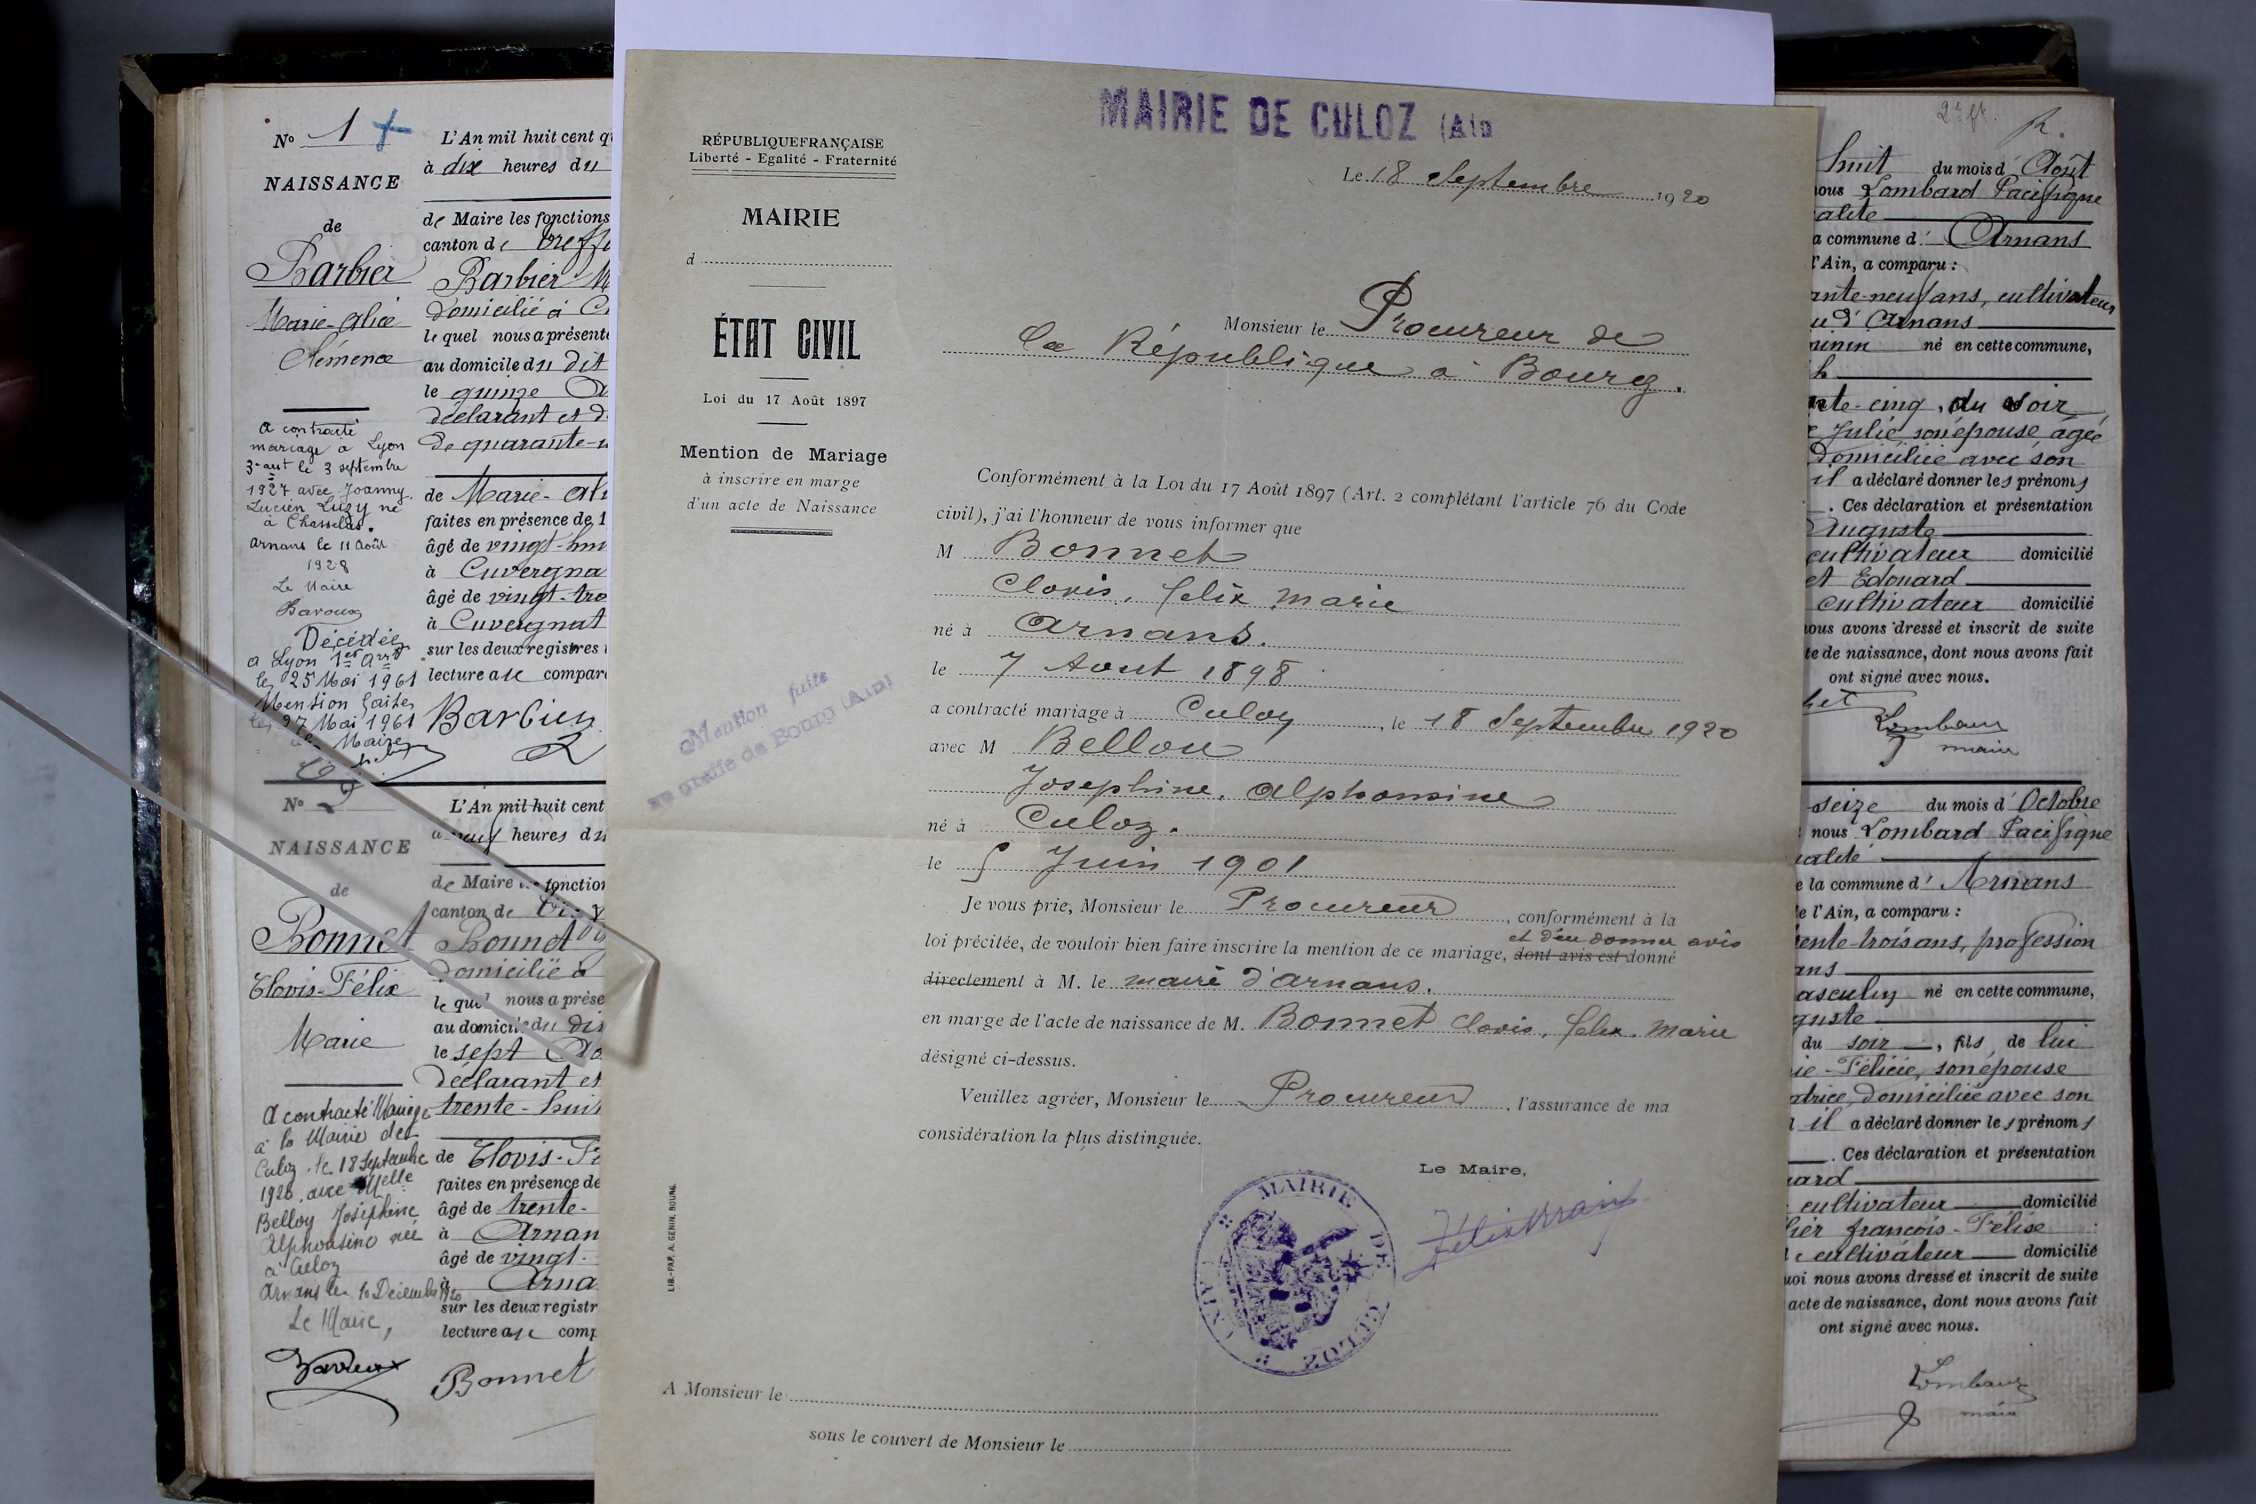 N° 1 +
NAISSANCE
de
Barbier
Marie-Alice
Clémence
a contracté
mariage à Lyon
3e art le 3 septembre
1927 avec Joanny
Lucien Luzy né
à Chasselas.
Arnans le 11 Août
1928
Le Maire
Décédée
à Lyon 1er Arrt
le 25 Mai 1961
Mention faite
le 27 Mai 1961
Le Maire
L'An mil huit cent q
à dix heures du
de Maire les fonctions
canton de Treff
Barbier M
domicilié à C
le quel nous a présent
au domicile du dit
le quinze A
déclarant et d
de quarante-
de Marie-Ali
faites en présence de 1
âgé de vingt-hui
à Cuvergna
âgé de vingt-tro
à Cuvergnat
sur les deux registres
lecture a le compar
Barbier
N° 2
NAISSANCE
de
Bonnet
Clovis-Félix
Marie
A contracté Mariage
à la Mairie de
Culoz le 18 Septembre
1920 avec Melle
Belloy Joséphine
Alphonsine née
à Culoz
Arnans le 10 Décembre 1920
Le Maire,
L'An mil huit cent
à neuf heures du
de Maire les fonction
canton de
Bonnet
domicilié à
le quel nous a prése
au domicile du dit
le sept Ao
déclarant et
trente-huit
de Clovis-Fé
faites en présence de
âgé de trente-
à Arnan
âgé de vingt-
à Arna
sur les deux registr
lecture a le comp
Bonnet
MAIRIE DE CULOZ (Ain
RÉPUBLIQUE FRANÇAISE
Liberté - Egalité - Fraternité
Le 18 Septembre 1920
MAIRIE
d
ÉTAT CIVIL
Loi du 17 Août 1897
Mention de Mariage
à inscrire en marge
d'un acte de Naissance
Mention faite
au greffe de Bourg (Ain)
Monsieur le Procureur de
la République à Bourg.
Conformément à la Loi du 17 Août 1897 (Art. 2 complétant l'article 76 du Code
civil), j'ai l'honneur de vous informer que
M Bonnet
Clovis, félix marie
né à Arnans.
le 7 Aout 1898
a contracté mariage à Culoz, le 18 Septembre 1920
avec M Bellou
Josephine, Alphonsine
né à Culoz.
le 5 Juin 1901
Je vous prie, Monsieur le Procureur, conformément à la
et d'en donner avis
loi précitée, de vouloir bien faire inscrire la mention de ce mariage, dont avis est donné
directement à M. le maire d'Arnans.
en marge de l'acte de naissance de M. Bonnet Clovis, felix. marie
désigné ci-dessus.
Veuillez agréer, Monsieur le Procureur, l'assurance de ma
considération la plus distinguée.
Le Maire,
MAIRIE DE CULOZ (AIN)
LIB.-PAP. A. GENIN, BOURG.
A Monsieur le
sous le couvert de Monsieur le
R.
huit du mois d'Août
nous Lombard Pacifique
alité
a commune d'Arnans
l'Ain, a comparu :
ante-neuf ans, cultivateur
u d'Arnans
minin né en cette commune,
h
nte-cinq, du soir
Julie, son épouse, agée
domiciliée avec son
il a déclaré donner les prénoms
. Ces déclaration et présentation
Auguste
cultivateur domicilié
et Edouard
cultivateur domicilié
nous avons dressé et inscrit de suite
te de naissance, dont nous avons fait
ont signé avec nous.
Lombard
maire
seize du mois d'Octobre
nous Lombard Pacifique
alité
e la commune d'Arnans
e l'Ain, a comparu :
rente-trois ans, profession
ans
asculin né en cette commune,
guste
du soir, fils de lui
ie-Félicie, son épouse
atrice, domiciliée avec son
il a déclaré donner les prénoms
. Ces déclaration et présentation
ard
cultivateur domicilié
ier françois-Félise
cultivateur domicilié
uoi nous avons dressé et inscrit de suite
acte de naissance, dont nous avons fait
ont signé avec nous.
Lombard
maire